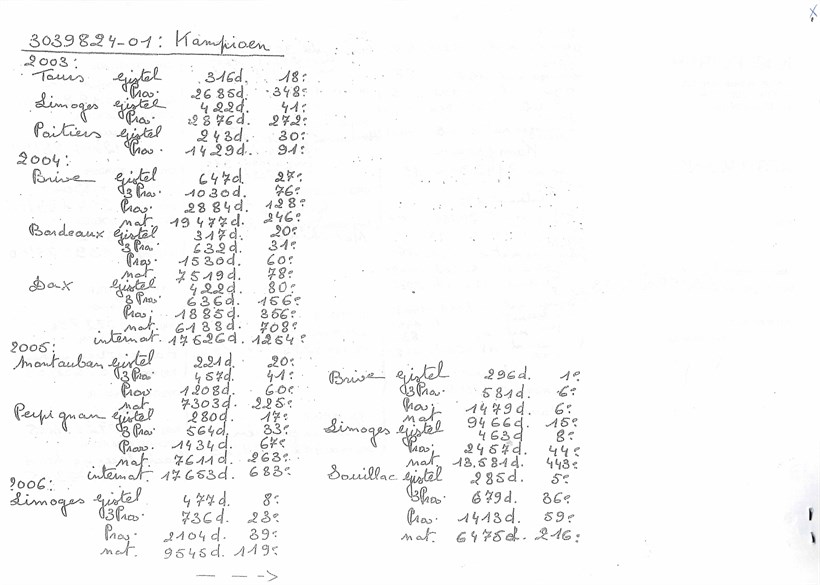 3039824-01: Kampioen
2003:
Tours Gistel 316d. 18e
Prov. 2685d. 348e
Limoges Gistel 422d. 41e
Prov. 2876d. 272e
Poitiers Gistel 243d. 30e
Prov. 1429d. 91e
2004:
Brive Gistel 647d. 27e
3Prov. 1030d. 76e
Prov. 2884d. 128e
nat. 19477d. 246e
Bordeaux Gistel 317d. 20e
3Prov. 632d. 31e
Prov. 1530d. 60e
nat. 7519d. 78e
Dax Gistel 422d. 80e
3Prov. 636d. 156e
Prov. 1885d. 356e
nat. 6138d. 708e
internat. 17526d. 1254e
2005:
Montauban Gistel 221d. 20e
3Prov. 457d. 41e
Prov. 1208d. 60e
nat. 7303d. 225e
Perpignan Gistel 280d. 17e
3Prov. 564d. 33e
Prov. 1434d. 67e
nat. 7611d. 263e
internat. 17653d. 683e
2006:
Limoges Gistel 477d. 8e
3Prov. 736d. 23e
Prov. 2104d. 39e
nat. 9545d. 119e
Brive Gistel 296d. 1e
3Prov. 581d. 6e
Prov. 1479d. 6e
nat 9466d. 15e
Limoges Gistel 463d 8e
Prov. 2457d. 44e
nat 13,581d. 443e
Souillac Gistel 285d. 5e
3Prov. 679d. 36e
Prov. 1413d. 59e
nat. 6475d. 216e
— — —>